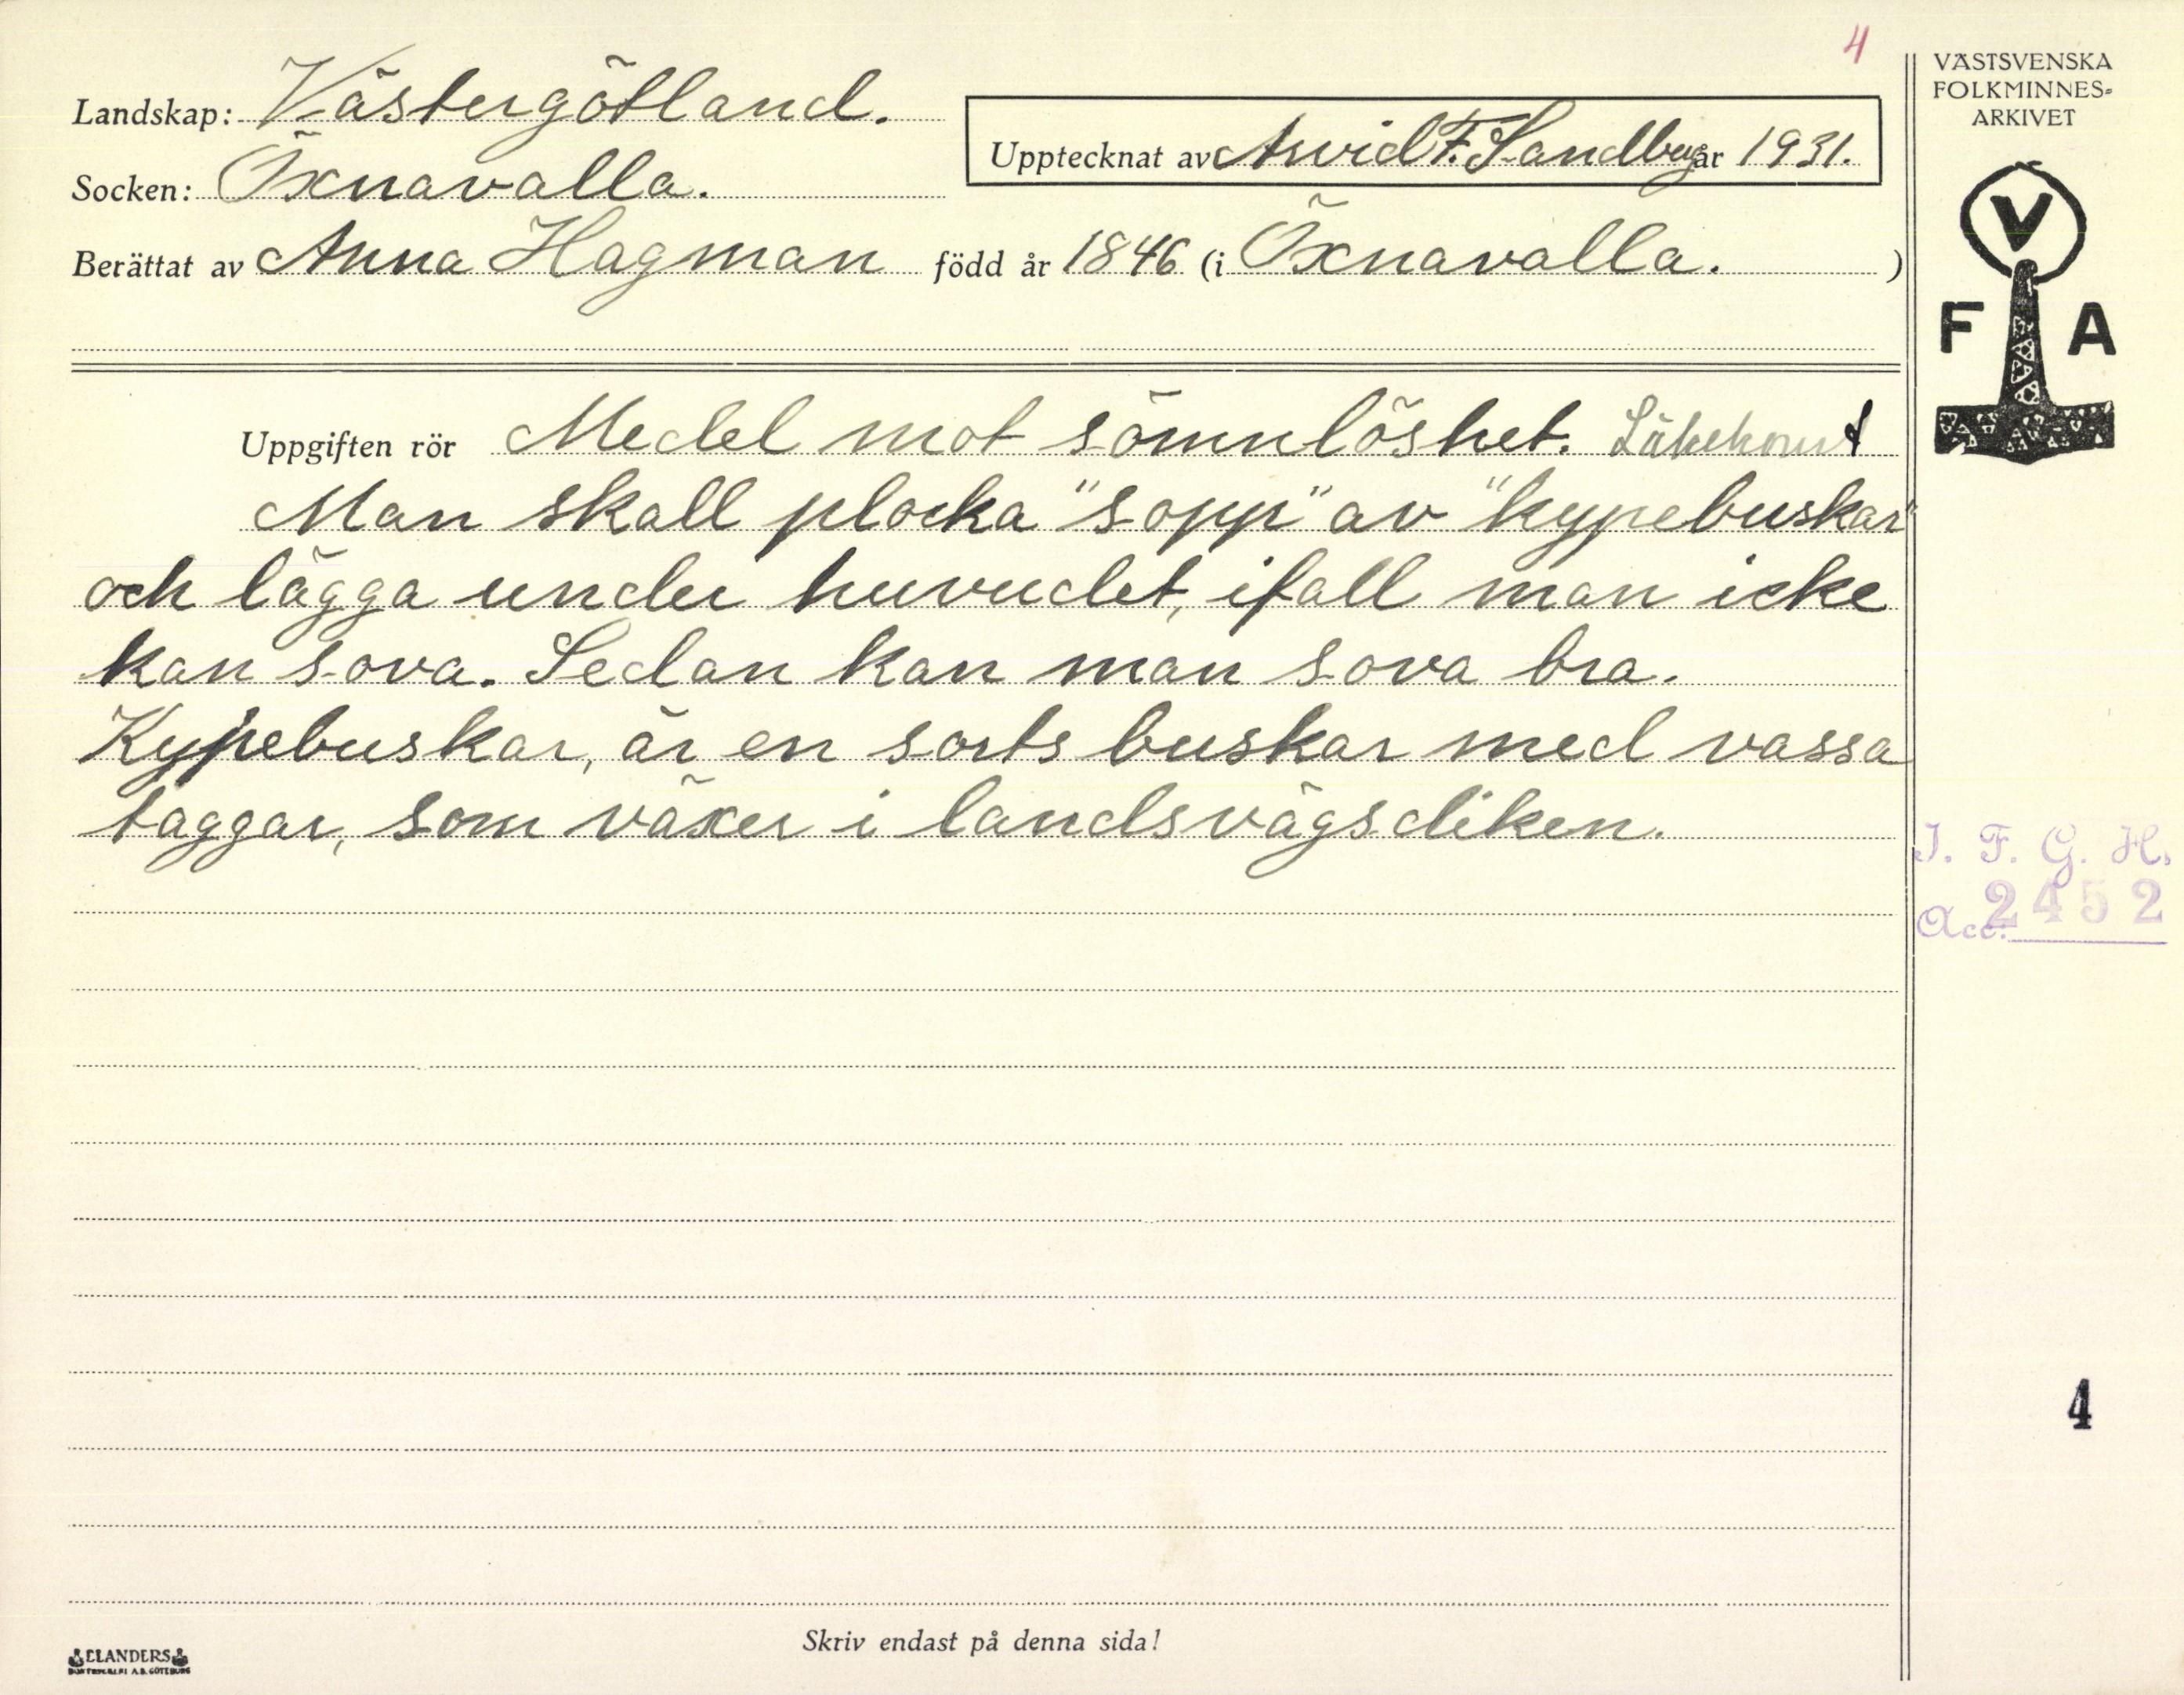 4
VÄSTSVENSKA
FOLKMINNES-
ARKIVET
Landskap: Västergötland.
Upptecknat av Arvid F. Sandberg år 1931.
Socken: Öxnavalla.
Berättat av Anna Hagman född år 1846 (i Öxnavalla. )
V
F A
Uppgiften rör Medel mot sömnlöshet. Läkekonst
Man skall plocka "sopp" av "kypebuskar"
och lägga under huvudet, ifall man icke
kan sova. Sedan kan man sova bra.
Kypebuskar, är en sorts buskar med vassa
taggar, som växer i landsvägsdiken.
I. F. G. H.
Acc. 2452
4
Skriv endast på denna sida!
ELANDERS
BOKTRYCKERI A.B. GÖTEBORG